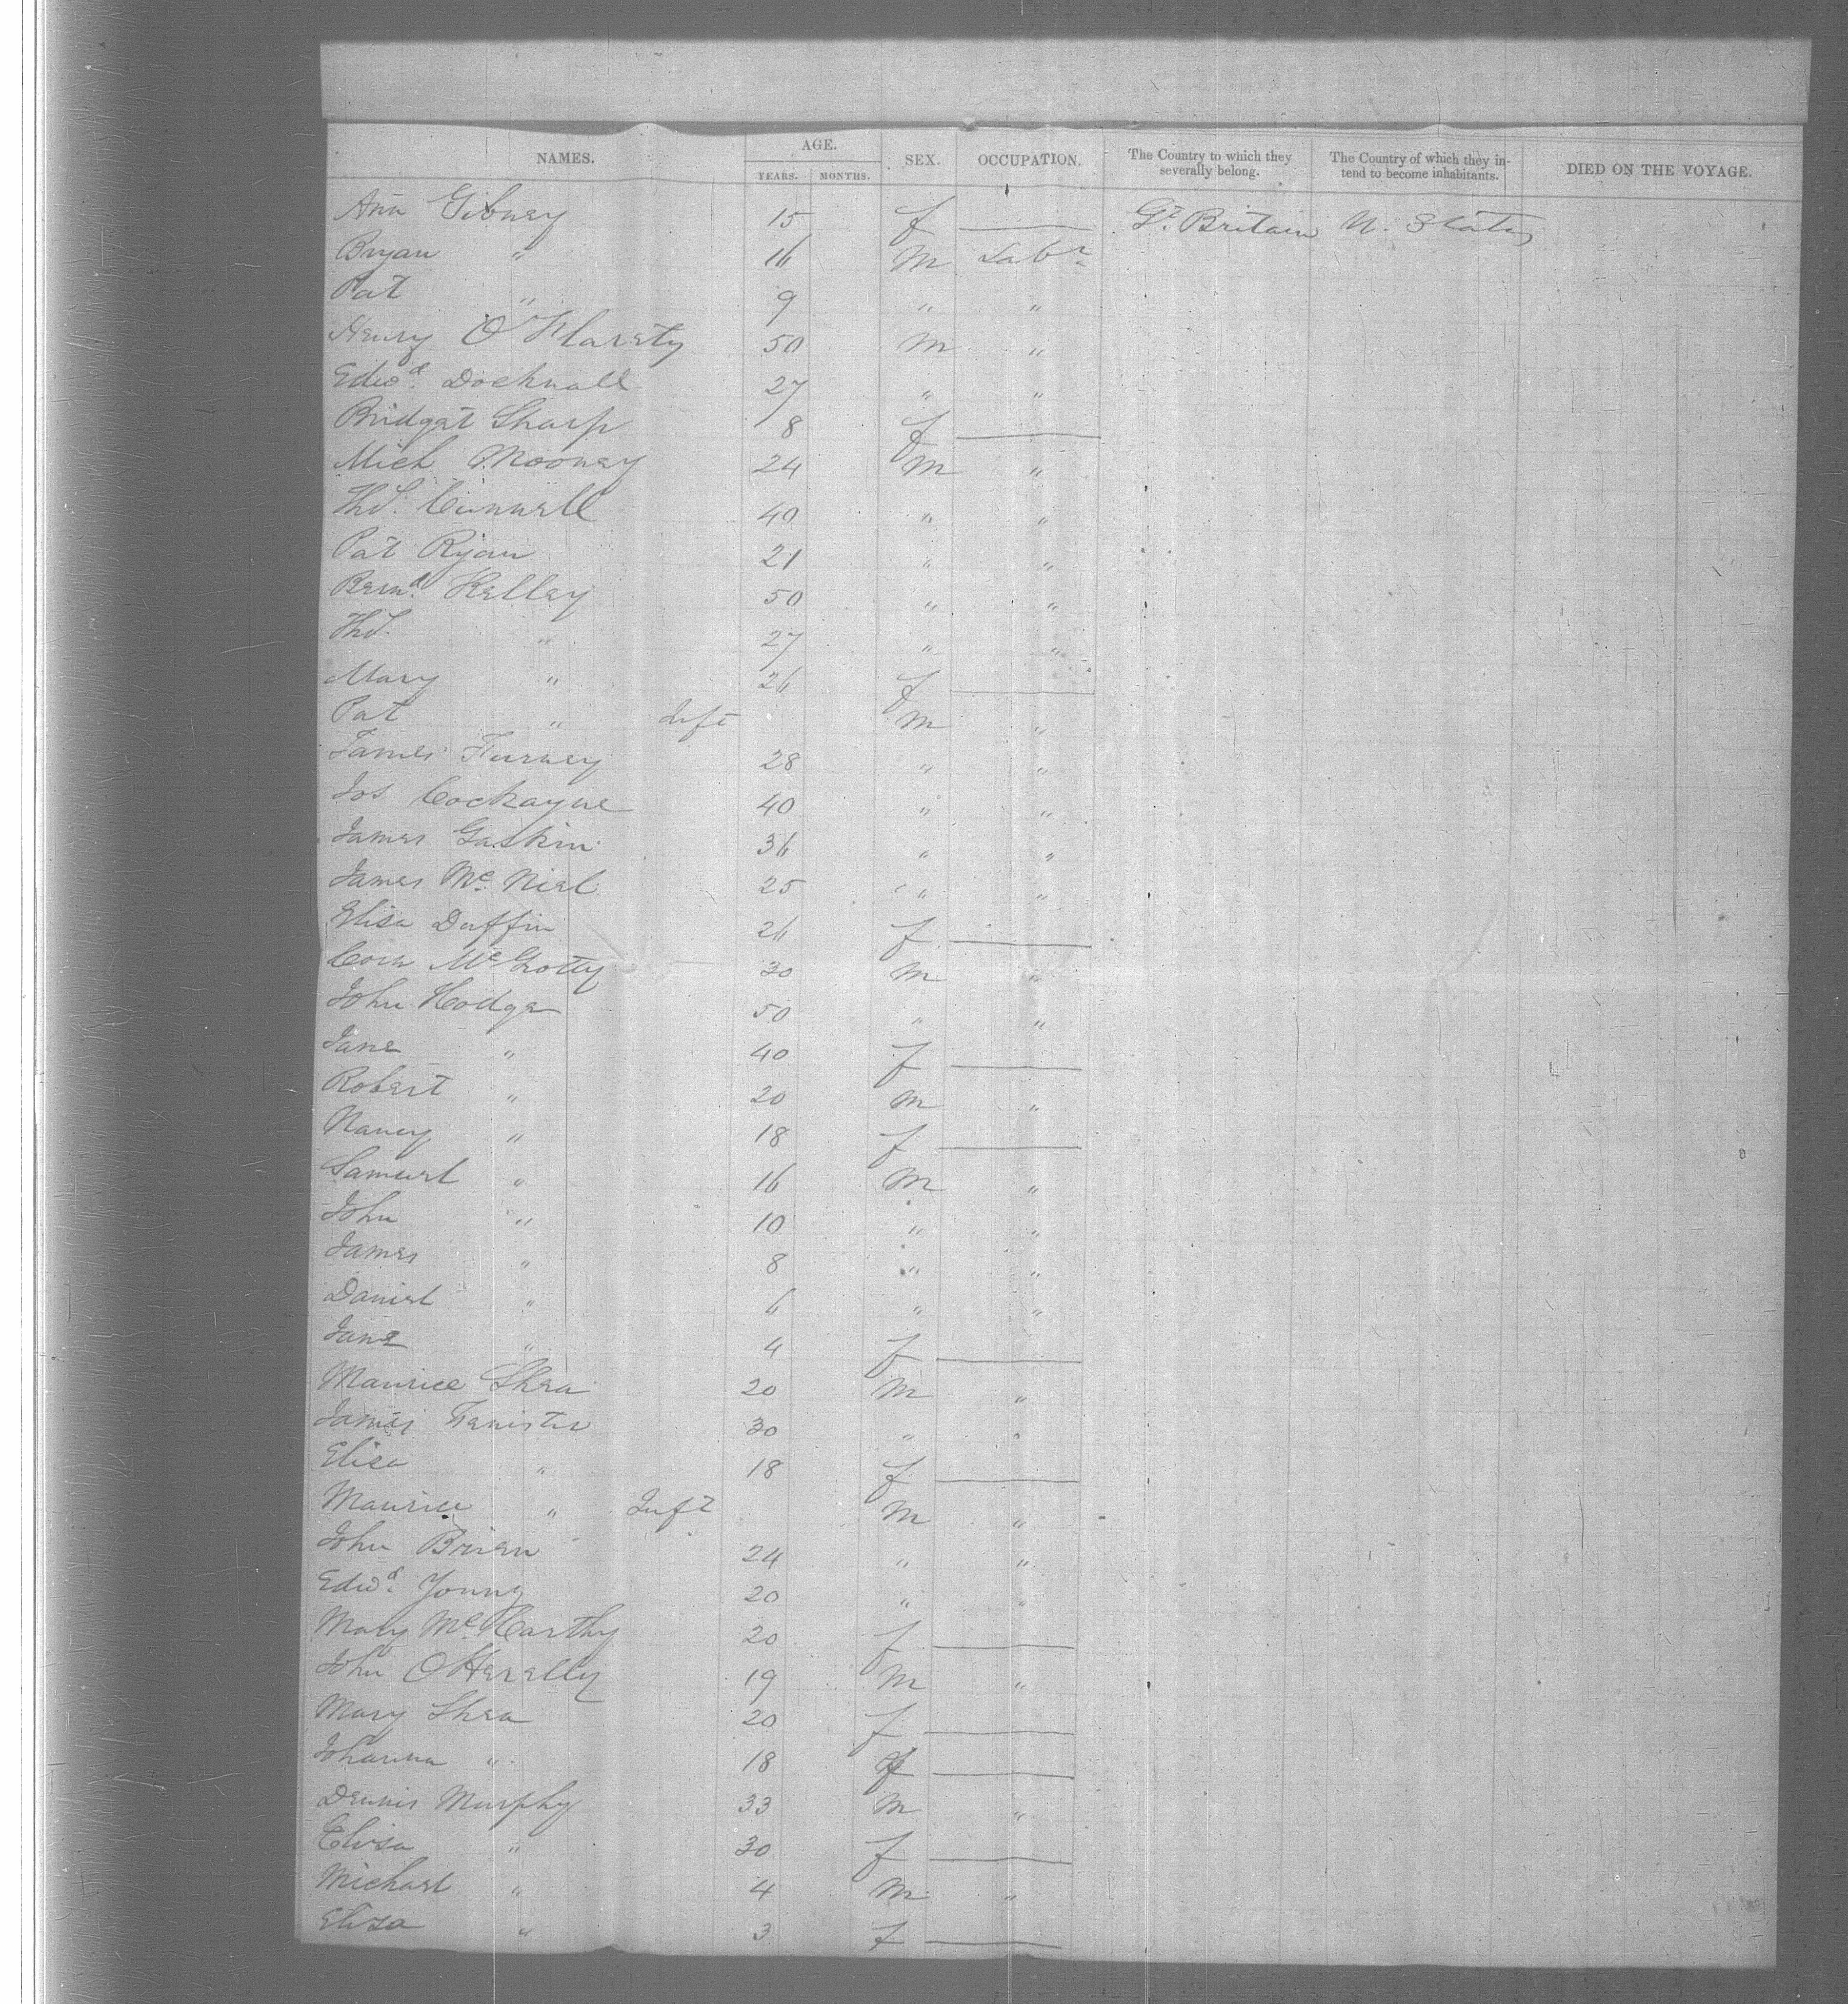 NAMES. AGE. YEARS. MONTHS. SEX. OCCUPATION. The Country to which they severally belong. The Country of which they intend to become inhabitants. DIED ON THE VOYAGE.
Ann Gibney 15 f — Gt. Britain U. States
Bryan " 16 M Labr
Pat " 9 " "
Henry O'Flarety 50 M "
Edwd. 27 " "
Bridget Sharp 8 f —
Mich Mooney 24 M "
Thos. 40 " "
Pat Ryan 21 " "
Bernd. Kelley 50 " "
Thos. " 27 " "
Mary " 26 f —
Pat " Inft M "
James 28 " "
Jos Cockayne 40 " "
James Gaskin 36 " "
James Mc. Niel 25 " "
Elisa Duffin 26 f —
Corn McGrotty 30 M "
John Hodge 50 " "
Jane " 40 f —
Robert " 20 M "
Nancy " 18 f —
Samuel " 16 M "
John " 10 " "
James " 8 " "
Daniel " 6 " "
Jane " 4 f —
Maurice Shea 20 M "
James 30 " "
Elisa " 18 f —
Maurice " Inft M "
John Brien 24 " "
Edwd. Young 20 " "
Mary Mc.Carthy 20 f —
John 19 M "
Mary Shea 20 f —
Johanna " 18 f —
Dennis Murphy 33 M "
Elisa " 30 f —
Michael " 4 M "
Eliza " 3 f —